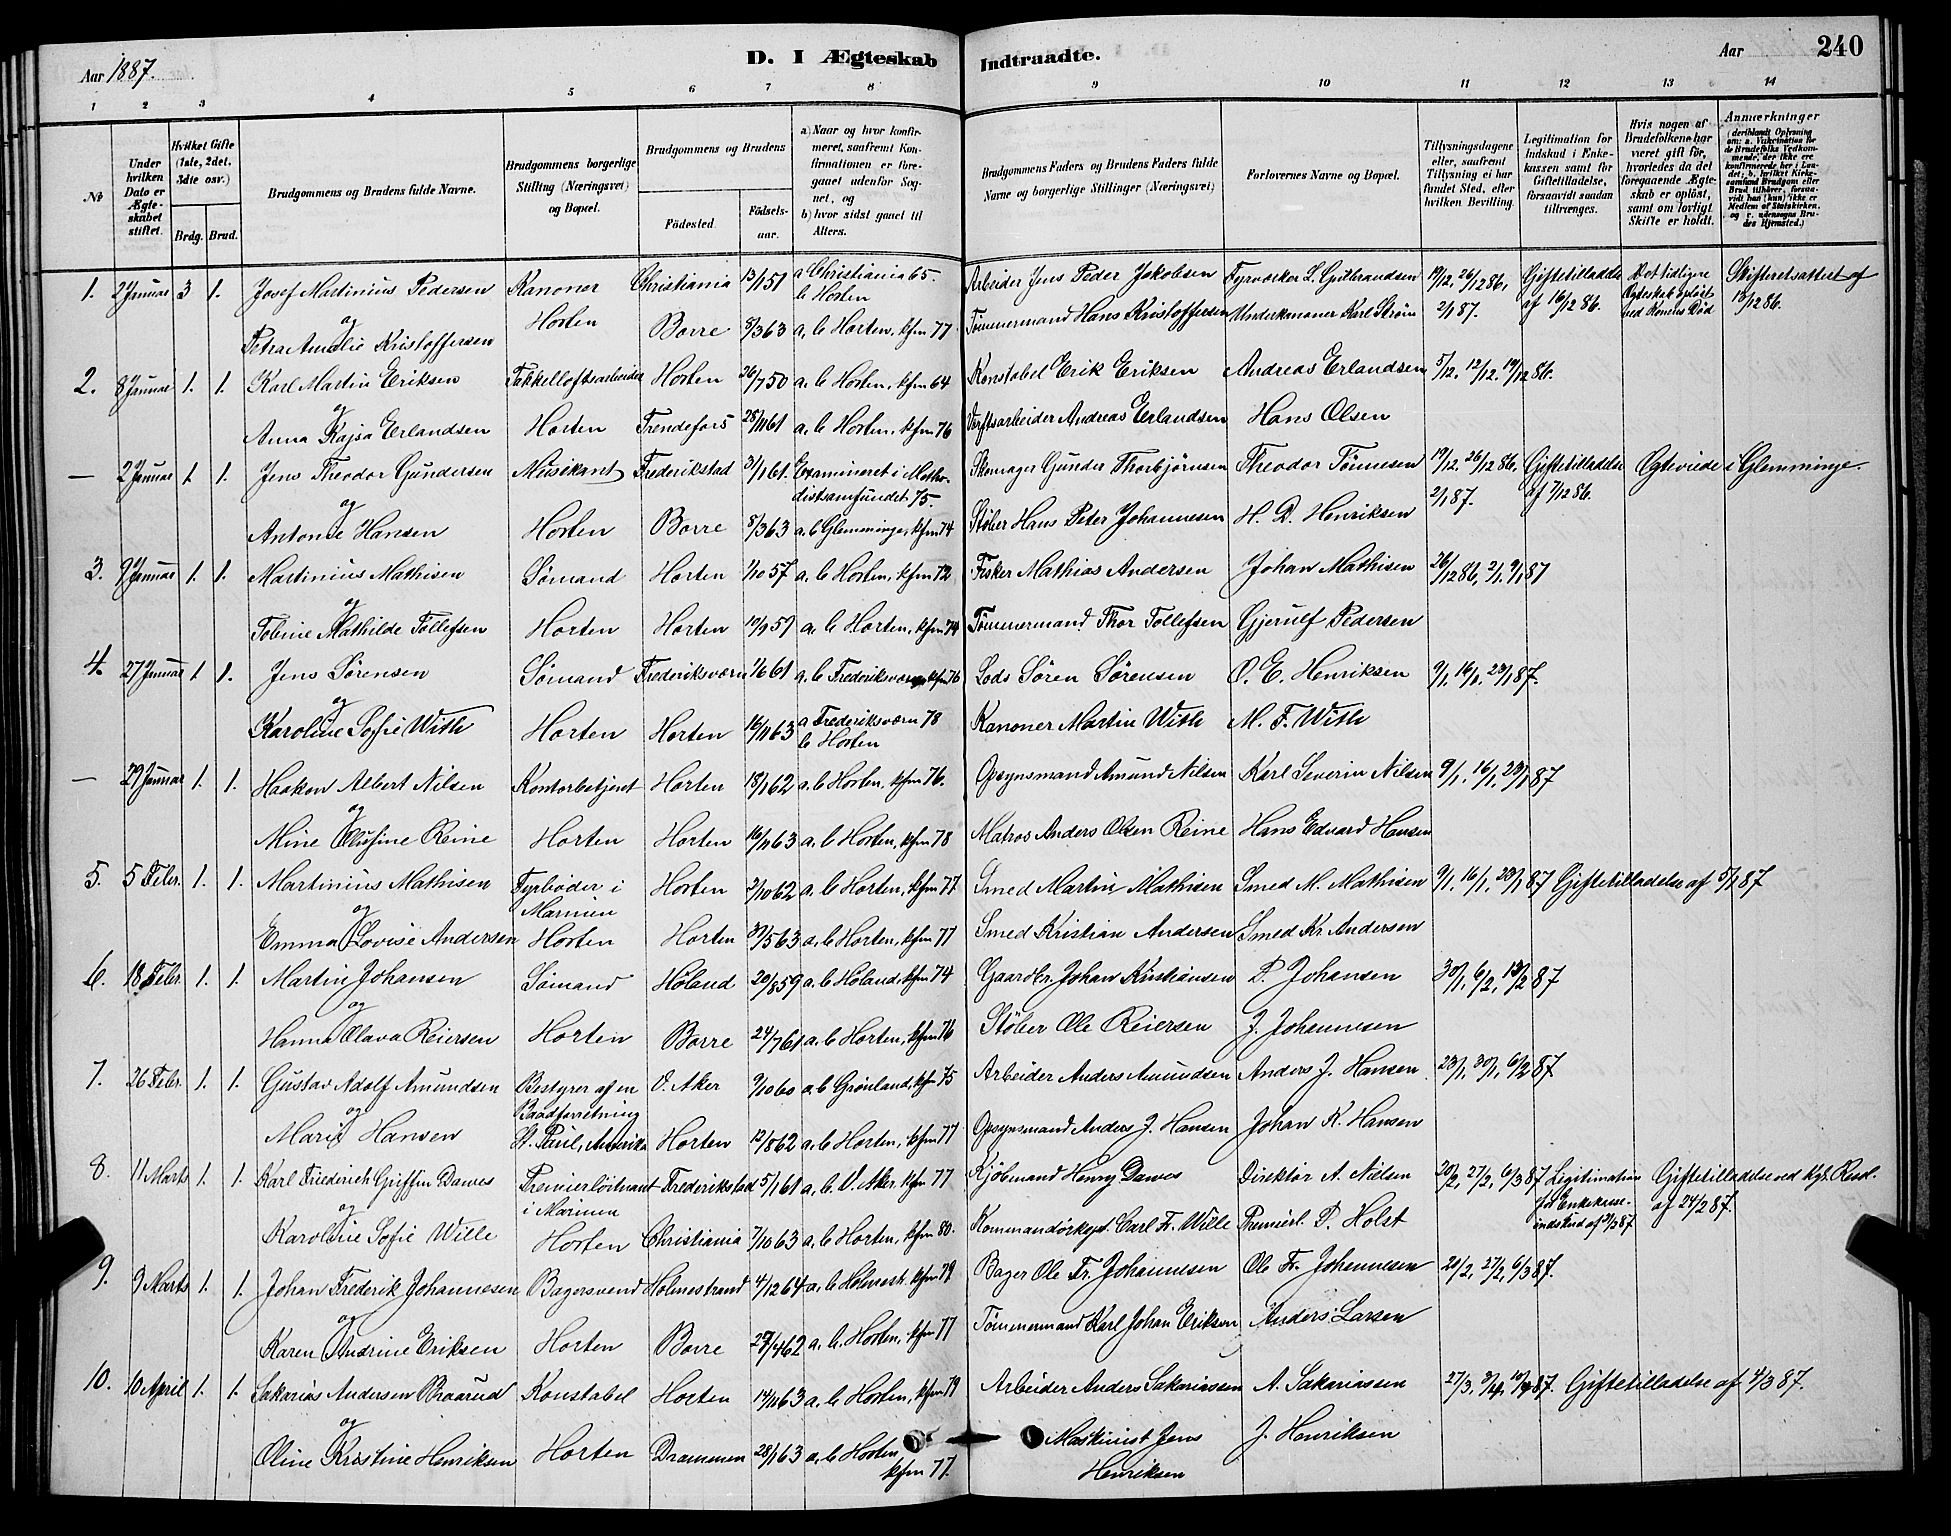 Aar 1887.
D. I Ægteskab Indtraadte.
Aar
240
1 2 3 4 5 6 7 8 9 10 11 12 13 14
No
Under hvilken Dato er Ægteskabet stiftet.
Hvilket Gifte (1ste, 2det, 3die osv.)
Brdg. Brud.
Brudgommens og Brudens fulde Navne.
Brudgommens borgerlige Stilling (Næringsvei) og Bopæl.
Brudgommens og Brudens
Födested.
Födselsaar.
a) Naar og hvor konfirmeret, saafremt Konfirmationen er foregaaet udenfor Sognet, og
b) hvor sidst gaaet til Alters.
Brudgommens Faders og Brudens Faders fulde Navne og borgerlige Stillinger (Næringsvei)
Forlovernes Navne og Bopæl.
Tillysningsdagene eller, saafremt Tillysning ei har fundet Sted, efter hvilken Bevilling.
Legitimation for Indskud i Enkekassen samt for Giftetilladelse, forsaavidt saadan tiltrænges.
Hvis nogen af Brudefolkene har været gift för, hvorledes da det foregaaende Ægteskab er oplöst, samt om lovligt Skifte er holdt.
Anmærkninger (deriblandt Oplysning om: a. Vaksination for de Brudefolks Vedkommende, der ikke ere konfirmerede her i Landet; b. hvilket Kirkesamfund Brudgom eller Brud tilhører, forsaavidt han (hun) ikke er Medlem af Statskirken, og c. udensogns Brudes Hjemsted.)
1. 2 Januar 3 1. Josef Martinius Pedersen Kanoner Christiania 13/1 51 a Christiania 65. b Horten Arbeider Jens Peder Jakobsen Fyrvorker L. Gulbrandsen 19/12, 26/12 86, 2/1 87. Giftetilladelse af 16/12 86. Det tidligere Ægteskab opløst ved Konens Død Skifteretsattest af 18/12 86.
og
Petra Amalie Kristoffersen Horten Borre 8/3 63 a, b Horten, kfm 77. Tømmermand Hans Kristoffersen Underkanoner Karl Strøm
2. 8 Januar 1. 1. Karl Martin Eriksen Takkelloftsarbeider Horten 26/7 50 a, b Horten, kfm 64 Konstabel Erik Eriksen Andreas Erlandsen 5/12, 12/12, 19/12 86.
og
Anna Kajsa Erlandsen Horten Trendefors 28/11 61 a, b Horten, kfm 76 Verftsarbeider Andreas Erlandsen Hans Olsen
— 2 Januar 1. 1. Jens Theodor Gundersen Musikant Frederikstad 31/1 61. Examineret i Methodistsamfundet 75. Skomager Gunder Thorbjørnsen Theodor Tønnesen 19/12, 26/12 86, 2/1 87. Giftetilladelse af 7/12 86. Ægteviede i Glemminge.
og
Antonie Hansen Horten Borre 8/3 63 a, b Glemminge, kfm 74 Støber Hans Peter Johannesen H. D. Henriksen
3. 9 Januar 1. 1. Martinius Mathisen Sømand Horten 1/10 57 a, b Horten, kfm 72 Fisker Mathias Andersen Johan Mathisen 26/12 86, 2/1, 9/1 87
og
Tobine Mathilde Tollefsen Horten Horten 19/9 59 a, b Horten, kfm 74 Tømmermand Thor Tollefsen Gjerulf Pedersen
4. 27 Januar 1 1. Jens Sørensen Sømand Frederiksværn 1/6 61 a, b Frederiksværn kfm 76 Lods Søren Sørensen O. E. Henriksen 9/1, 16/1, 23/1 87.
og
Karoline Sofie With Horten Horten 16/11 63 a Frederiksværn 78 b Horten Kanoner Martin With M. F. With
— 29 Januar 1. 1. Haakon Albert Nilsen Kontorbetjent Horten 18/1 62 a, b Horten, kfm 76. Opsynsmand Amund Nilsen Karl Severin Nilsen 9/1, 16/1, 23/1 87
og
Mine Olufine Reine Horten Horten 16/11 63 a, b Horten, kfm 78 Matros Anders Olsen Reine Hans Edvard Hansen
5. 5 Febr. 1. 1. Martinius Mathisen Fyrbøder i Marinen Horten 2/10 62 a, b Horten, kfm 77 Smed Martin Mathisen Smed M. Mathisen 9/1, 16/1, 23/1 87 Giftetilladelse af 5/1 87
og
Emma Lovise Andersen Horten Horten 30/5 63 a, b Horten, kfm 77 Smed Kristian Andersen Smed Kr Andersen
6. 18 Febr. 1. 1. Martin Johansen Sømand Høland 20/8 59 a, b Høland, kfm 74 Gaardbr. Johan Kristiansen P. Johansen 30/1, 6/2, 13/2 87
og
Hanna Olava Reiersen Horten Borre 24/7 61 a, b Horten, kfm 76 Støber Ole Reiersen J. Johannesen
7. 26 Febr. 1. 1. Gustav Adolf Amundsen Bestyrer af en Baadforretning O. Aker 9/10 60 a, b Grønland, kfm 75 Arbeider Anders Amundsen Anders J. Hansen 23/1, 30/1, 6/2 87
og
Marie Hansen St. Paul, Amerika Horten 12/8 62 a, b Horten, kfm 77 Opsynsmand Anders J. Hansen Johan K. Hansen
8. 11 Marts 1. 1. Karl Friederich Griffin Dawes Premierløitnant i Marinen Frederikstad 5/1 61 a, b. V. Aker kfm 77 Kjøbmand Henry Dawes Direktør A. Nielsen 20/2, 27/2, 6/3 87 Legitimation for Enkekasseindskud af 3/3 87 Giftetilladelse ved kgl. Resol. af 24/2 87.
og
Karoline Sofie Wille Horten Christiania 7/10 63 a, b Horten, kfm 80. Kommandørkapt. Carl Fr. Wille Premierl. P. Holst
9. 9 Marts 1. 1. Johan Frederik Johannesen Bagersvend Holmestrand 4/12 64 a, b Holmestr. kfm 79 Bager Ole Fr. Johannesen Ole Fr. Johennesen 20/2, 27/2, 6/3 87.
og
Karen Andrine Eriksen Horten Borre 29/4 62 a, b. Horten, kfm 77 Tømmermand Karl Johan Eriksen Anders Larsen
10. 10 April 1. 1. Sakarias Andersen Braarud Konstabel Horten 14/11 63 a, b Horten, kfm 79 Arbeider Anders Sakariassen A. Sakariassen 27/3, 3/4, 10/4 87. Giftetilladelse af 4/3 87.
og
Oline Kristine Henriksen Horten Drammen 28/1 63 a, b Horten kfm 77. Maskinist Jens Henriksen J. Henriksen